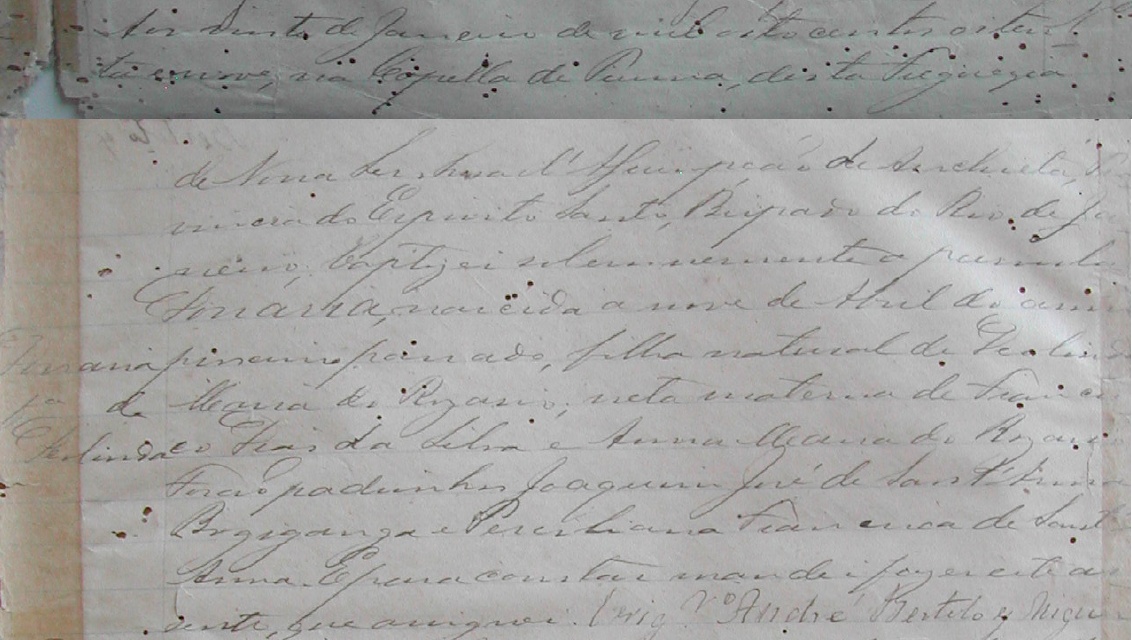 Aos vinte de Janeiro de mil oito centos e oiten
ta e nove, na Capella de Piuma, desta Freguezia
de Nossa Senhora d'Assumpção de Anchieta,
vincia do Espirito Santo, Bispado do Rio de Ja
neiro, baptizei solemnemente a parvula
nascida a nove de Abril do anno
proximo passado, filha natural de Deolinda
Maria do Rozario, neta materna de Francis
co Dias da Silva e Anna Maria do Rozario
Forão padrinhos Joaquim José de Sant'Anna
Bogiganga e Perciliana Francisca de Sant
Anna. E para constar mandei fazer este as
sento, que assignei. Vrio André
pª de
Deolinda